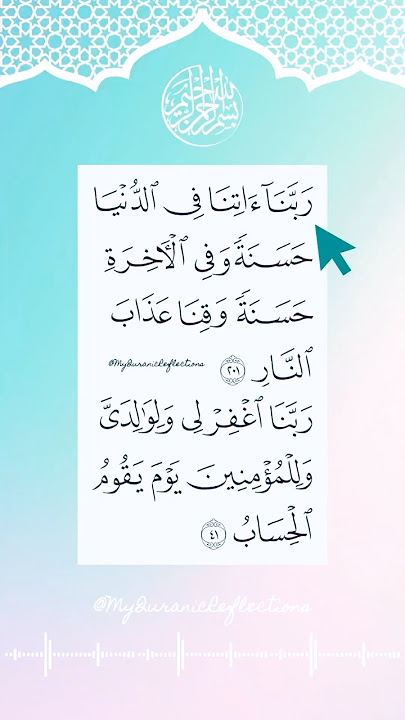 بسم الله الرحمن الرحيم
رَبَّنَآ ءَاتِنَا فِى ٱلدُّنْيَا
حَسَنَةً وَفِى ٱلْأَخِرَةِ
حَسَنَةً وَقِنَا عَذَابَ
ٱلنَّارِ ٢٠١
@MyQuranicReflections
رَبَّنَا ٱغْفِرْ لِى وَلِوَٰلِدَىَّ
وَلِلْمُؤْمِنِينَ يَوْمَ يَقُومُ
ٱلْحِسَابُ ٤١
@MyQuranicReflections